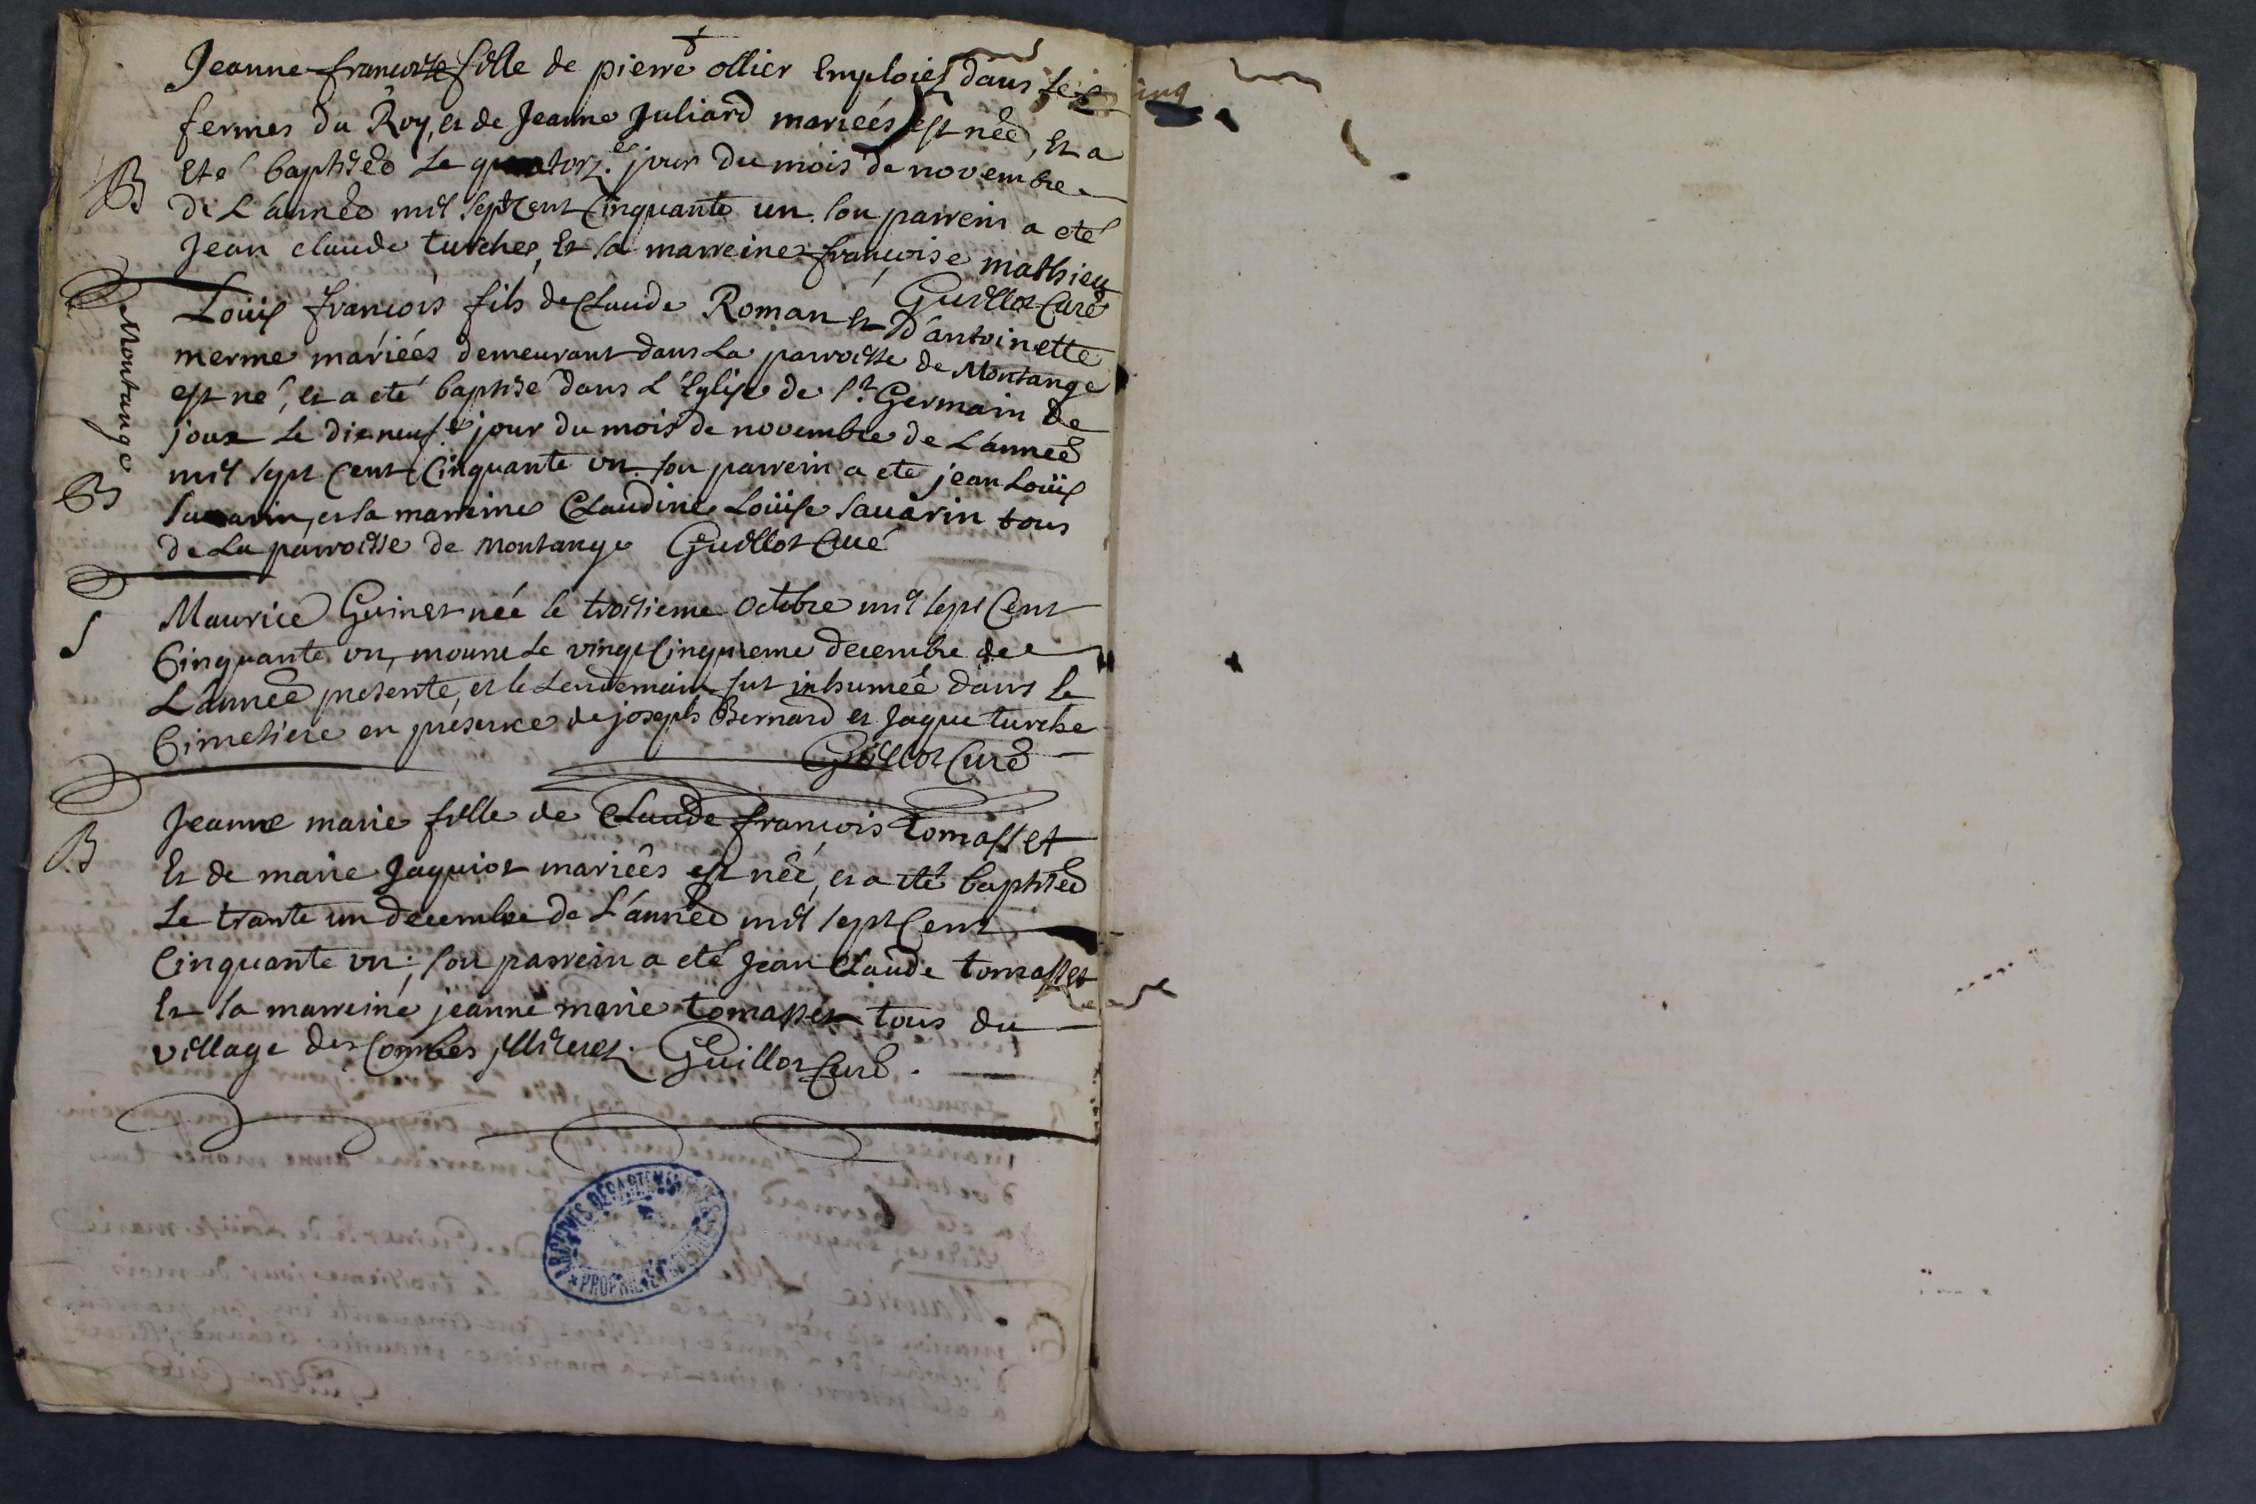 Jeanne françoise fille de pierre ollier Emploiez dans les
fermes du Roy, et de Jeanne Juliard mariéés est néé, Et a
B
Eté baptiséé Le quatorz.e jour du mois de novembre
de L'annéé mil sept Cent Cinquante un. son parrein a eté
Jean claude turches, Et sa marreine françoise mathieu
Guillot Curé
Montange
Loüis françois fils de Claude Roman et D'antoinette
merme mariéés demeurant dans La parroisse de Montange
est né, et a eté baptisé dans L'Eglise de St Germain de
joux Le dixneuf.e jour du mois de novembre de L'annéé
B
mil sept Cent Cinquante vn son parrein a eté jean Loüis
savarin, et sa marreine Claudine Loüise savarin tous
de La parroisse de Montange Guillot Curé
S
Maurice Guinet néé le troisieme Octobre mil sept Cent
Cinquante vn, mourut Le vingt Cinquieme decembre de
L'annéé presente, et le Lendemain fut inhuméé dans le
Cimetiere en présence de joseph Bernard et Jaque turche
Guillot Curé
B
Jeanne marie fille de Claude françois tomasset
Et de marie Jaquiot mariéés est néé, et a eté baptiséé
Le trante un decembre de L'annéé mil sept Cent
Cinquante vn; son parrein a eté Jean Claude tomasset
Et sa marreine jeanne marie tomasset tous du
village des Combes illiterez. Guillot Curé.
ARCHIVES DÉPARTEMENTALES
PROPRIÉTÉ PUBLIQUE